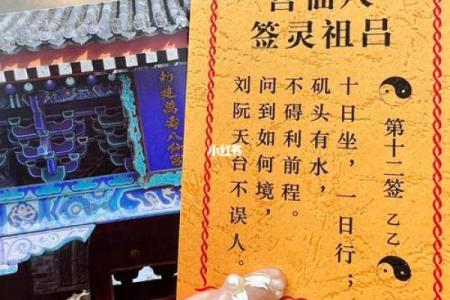 八仙宫
吕祖灵签
第十二签 乙乙
十日坐，一日行；
矶头有水，
不碍利前程。
问到如何境，
刘阮天台不误人。
勅建萬壽八仙宮
小红书